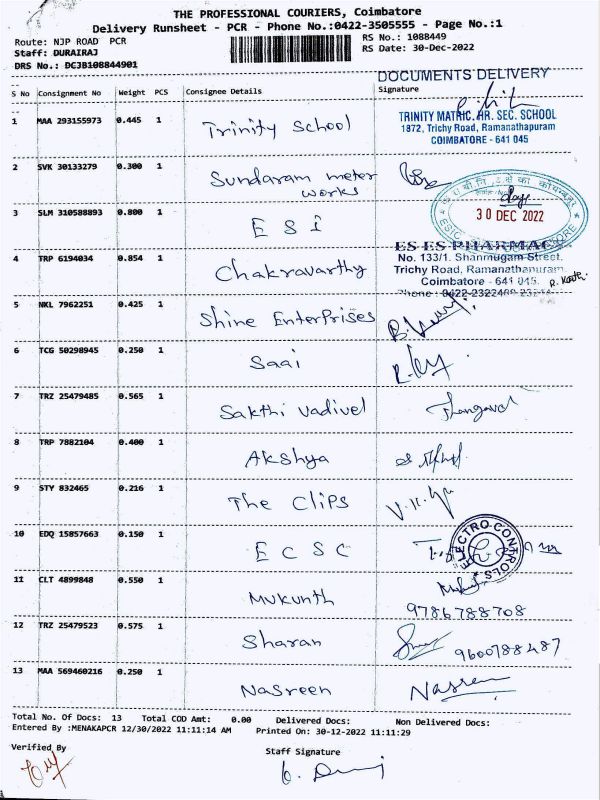 THE PROFESSIONAL COURIERS, Coimbatore
Delivery Runsheet - PCR - Phone No.:0422-3505555 - Page No.:1
Route: NJP ROAD PCR
RS No.: 1088449
Staff: DURAIRAJ
RS Date: 30-Dec-2022
DRS No.: DCJB108844901
DOCUMENTS DELIVERY
S No Consignment No Weight PCS Consignee Details Signature
1 MAA 293155973 0.445 1 Trinity School
TRINITY MATRIC.HR. SEC. SCHOOL
1872, Trichy Road, Ramanathapuram
COIMBATORE - 641 045
2 SVK 30133279 0.300 1 Sundaram meter
works
3 SLM 310588893 0.800 1 ESI
30 DEC 2022
4 TRP 6194034 0.854 1 Chakravarthy
ES ES PHARMACY
No. 133/1. Shanmugam Street.
Trichy Road, Ramanathapuram.
Coimbatore - 641 045.
5 NKL 7962251 0.425 1 Shine Enterprises
6 TCG 50298945 0.250 1 Saai
7 TRZ 25479485 0.565 1 Sakthi vadivel
8 TRP 7882104 0.400 1 Akshya
9 STY 832465 0.216 1 The Clips
10 EDQ 15857663 0.150 1 ECSC
ELECTRO CONTROLS
11 CLT 4899848 0.550 1 Mukunth
9786788708
12 TRZ 25479523 0.575 1 Sharan 9600788487
13 MAA 569460216 0.250 1 Nasreen Nasreen
Total No. Of Docs: 13 Total COD Amt: 0.00 Delivered Docs: Non Delivered Docs:
Entered By :MENAKAPCR 12/30/2022 11:11:14 AM Printed On: 30-12-2022 11:11:29
Verified By
Staff Signature